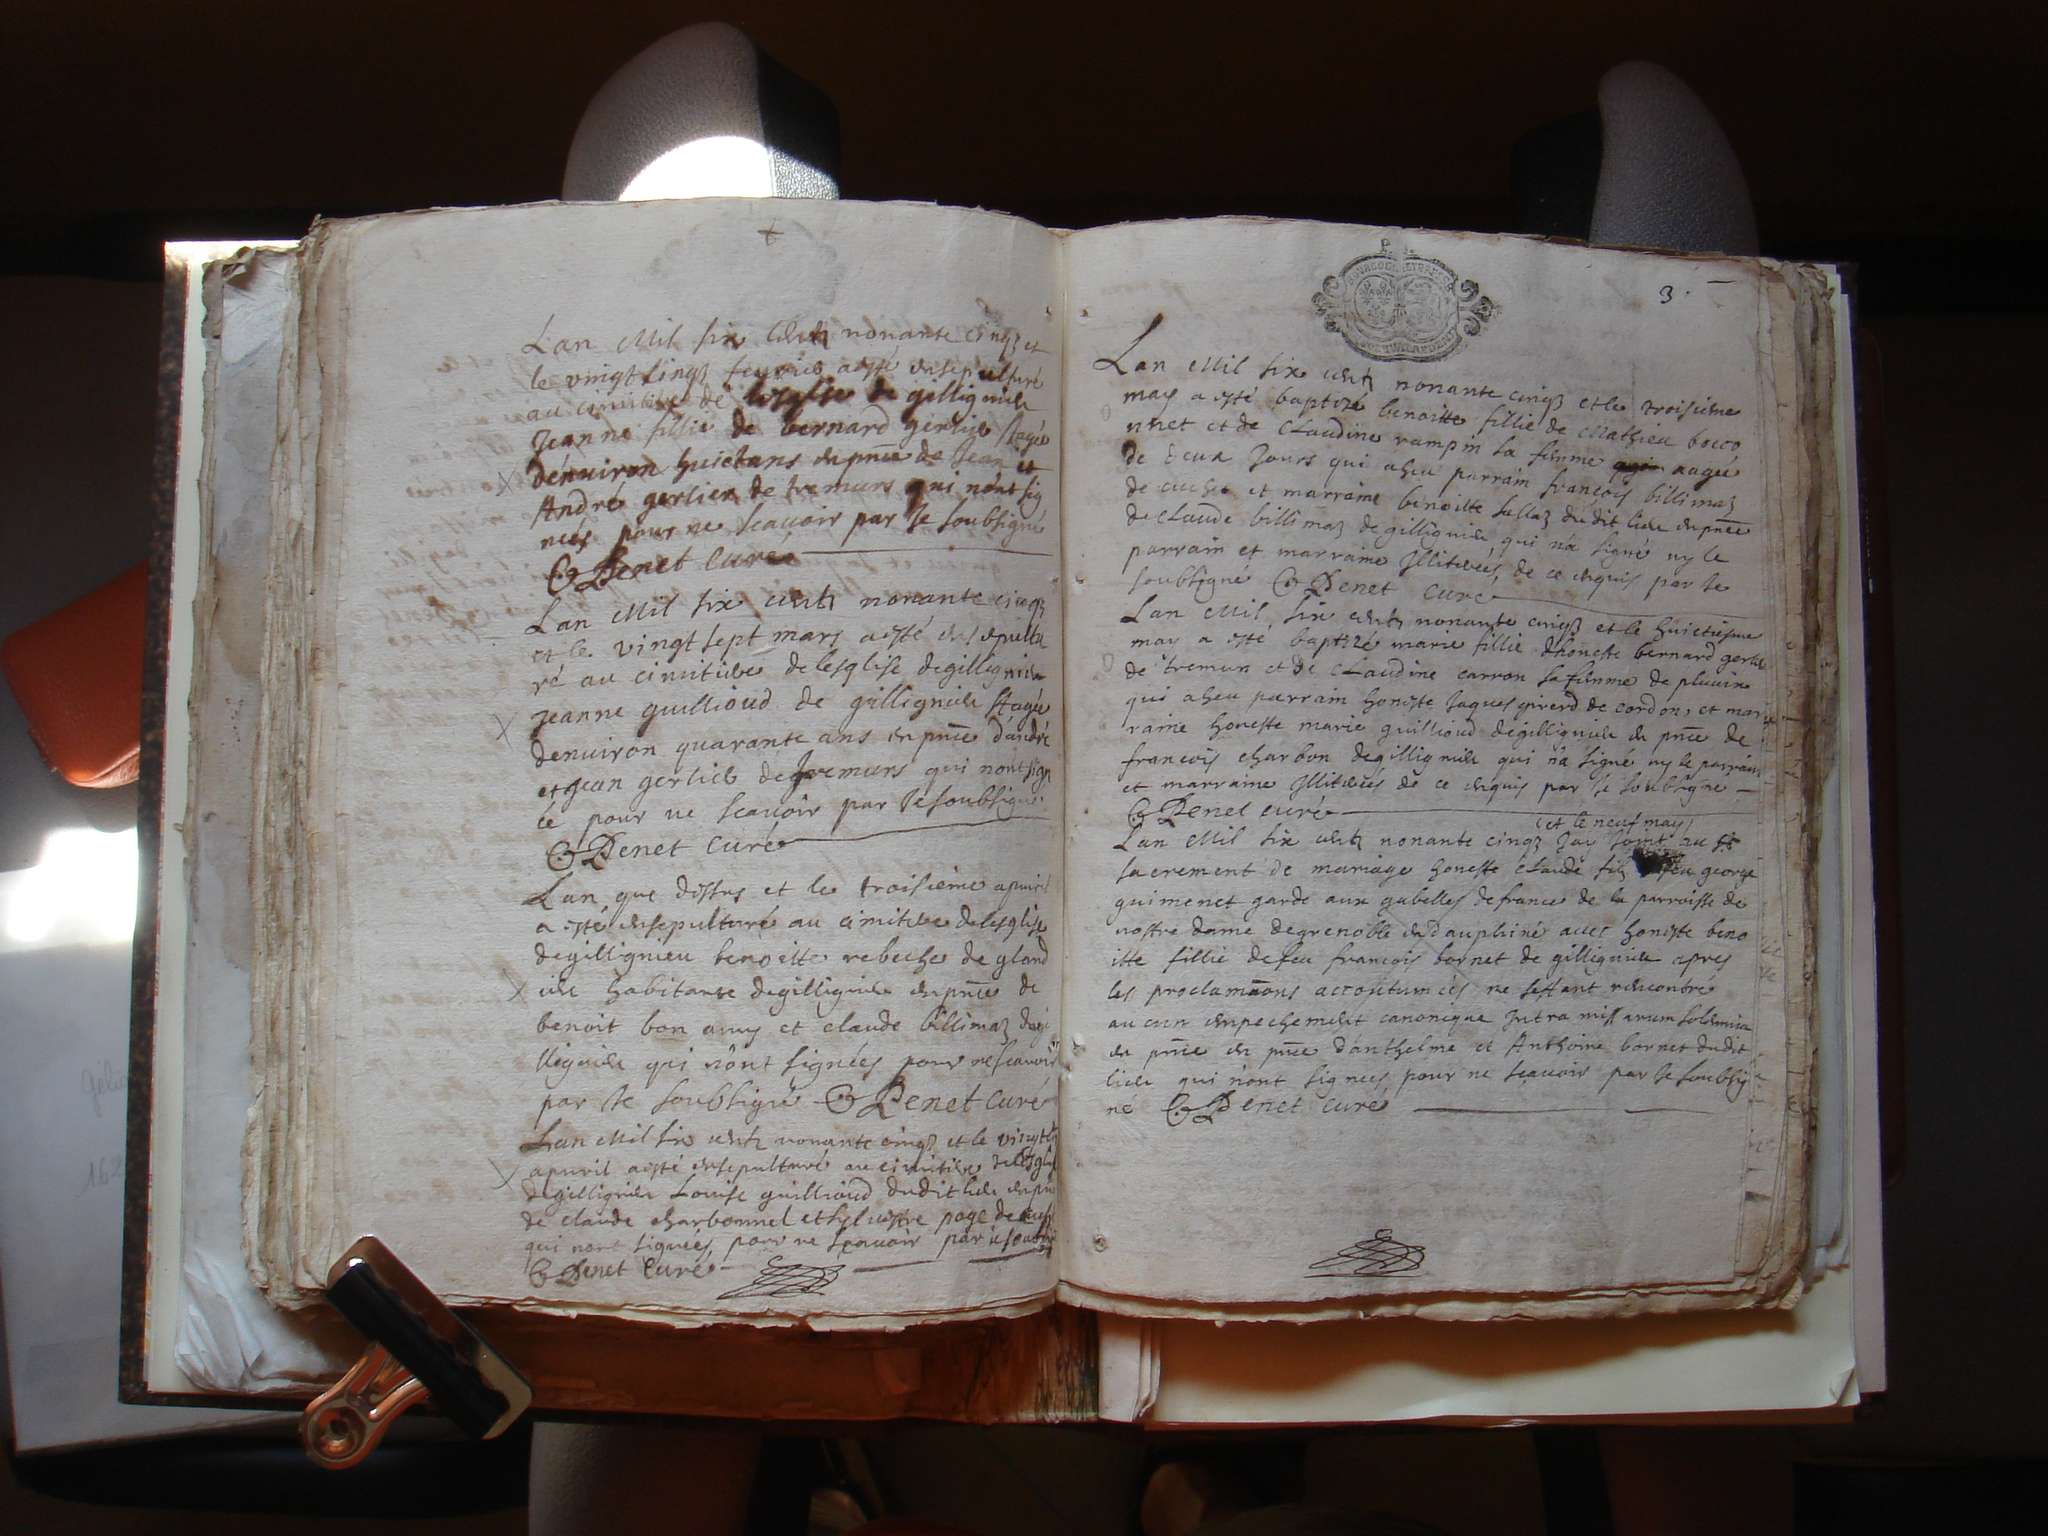 Lan Mil six cents nonante cinq et
le vingt cinq feuvrier a esté ensepulturé
au cimitiere de lesglise de gillignieu
Jeanne fillie de bernard gerlier Aagée
d'enuiron huict ans en pnce de Jean et
André gerlier de tremurs qui n'ont sig
nées pour ne scauoir par Je soubsigné
C Denet Curé
Lan Mil six cents nonante cinq
et le vingt sept mars a esté ensepultu
ré au cimitiere de lesglise de gillignieu
Jeanne guillioud de gillignieu Aagée
denuiron quarante ans en pnce d'andré
et Jean gerlier de tremurs qui n'ont sign
é pour ne scauoir par Je soubsigné
C Denet Curé
Lan que dessus et le troisieme apuril
a esté ensepulturé au cimitiere de lesglise
de gillignieu benoitte rebeche de gland
ieu habitante de gillignieu en pnce de
benoit bon amy et claude billimaz de gi
llignieu qui n'ont signées pour ne scauoir
par Je soubsigné C Denet Curé
Lan Mil six cents nonante cinq et le vingt
apuril a esté ensepulturé au cimitiere de lesglise
de gillignieu Louise guillioud dudit lieu en pnce
de claude charbonnel et syluestre page de
qui nont signées pour ne scauoir par Je soubsigné
C Denet Curé
3.
Lan Mil six cents nonante cinq et le troisieme
may a esté baptizé benoitte fillie de Mathieu bocco
nnet et de Claudine rampin sa femme aagée
de deux Jours qui a heu parrain françois billimaz
de cuchet et marraine benoitte sallaz dudit lieu en pnce
de Claude billimaz de gillignieu qui n'a signé ny le
parrain et marraine Illiterés, de ce enquis par Je
soubsigné C Denet Curé
Lan Mil six cents nonante cinq et le huictiesme
may a esté baptizé marie fillie dhoneste bernard gerlier
de tremurs et de Claudine carron sa femme de pluuine
qui a heu parrain honeste Jaques girerd de cordon, et mar
raine honeste marie guillioud de gillignieu en pnce de
francois charbon de gillignieu qui n'a signé ny le parrain
et marraine Illiterés de ce enquis par Je soubsigne
C Denet Curé
(et le neuf may)
Lan Mil six cents nonante cinq Jay Joint au st
sacrement de mariage honeste claude filz feu george
guimenet garde aux gabelles de france de la parroisse de
nostre dame de grenoble en dauphiné auec honeste beno
itte fillie de feu francois bornet de gillignieu apres
les proclamaons accoutumées ne sestant rencontre
aucun enpechement canonique Intra missarum solemnia
en pnce en pnce d'anthelme et Anthoine bornet dudit
lieu qui n'ont signees pour ne scauoir par Je soubsig
né C Denet Curé